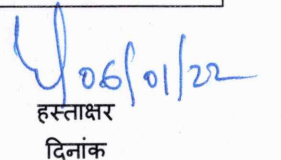 06/01/22
हस्ताक्षर
दिनांक